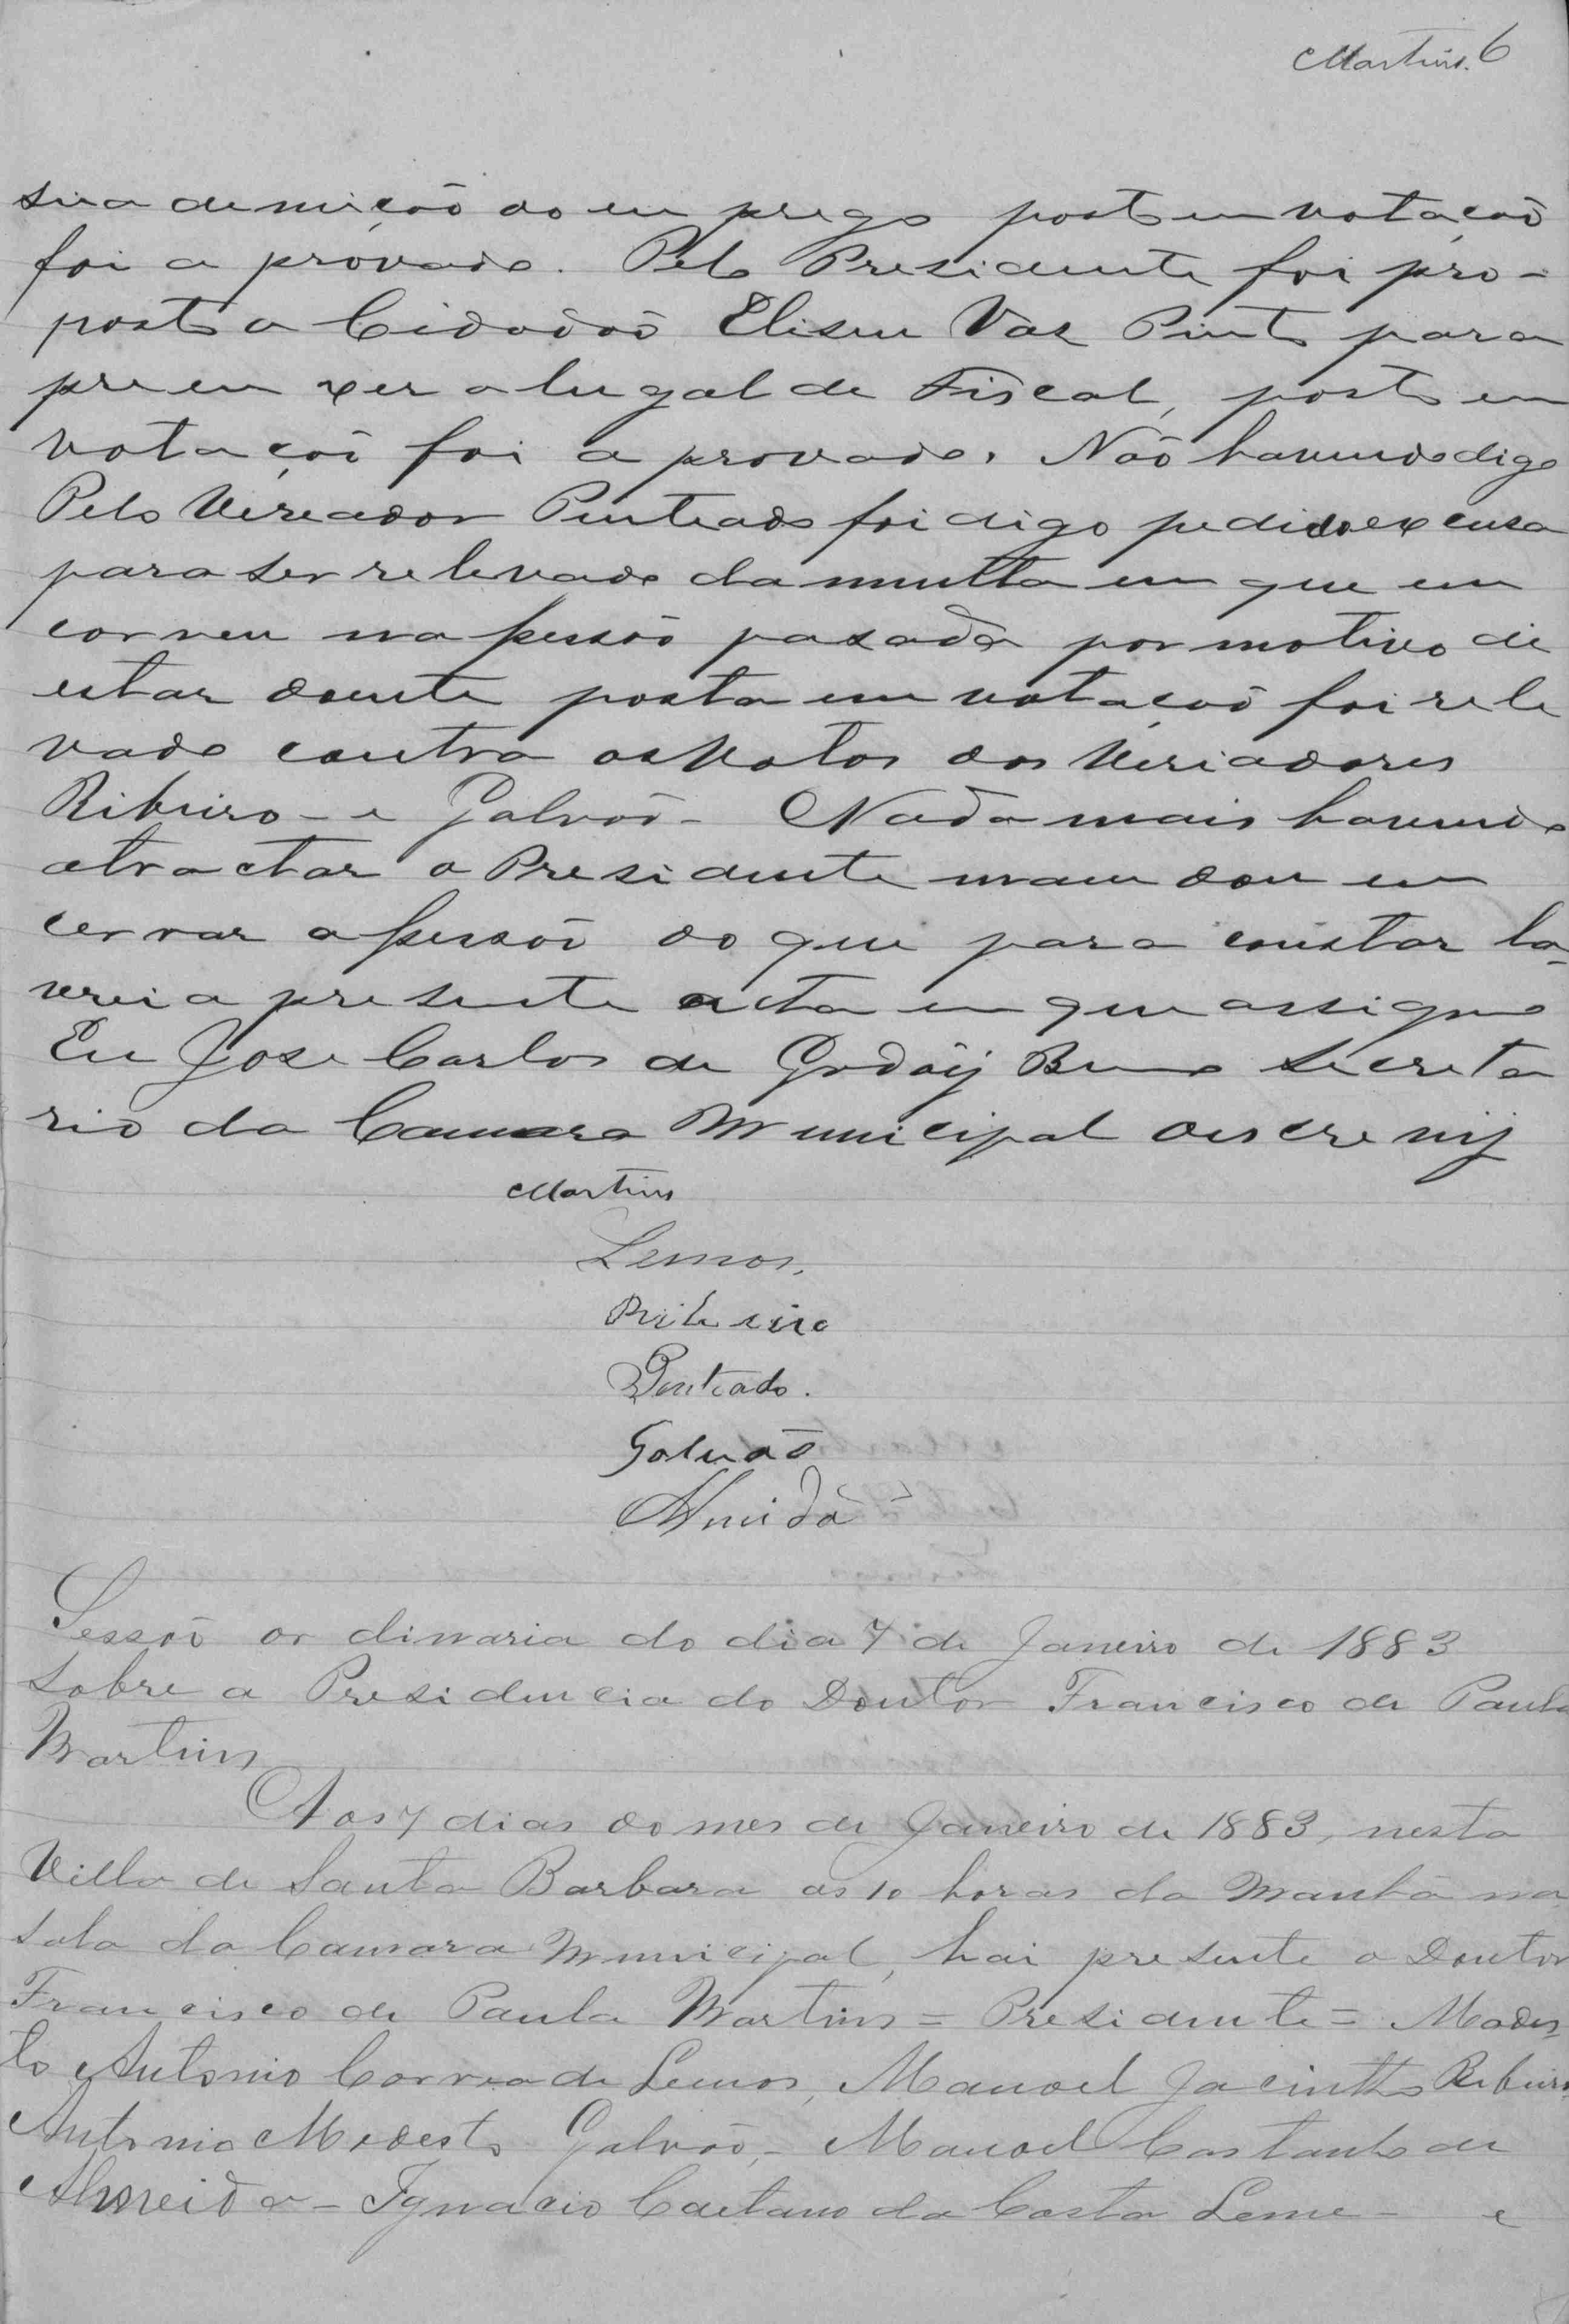 Martins. 6
sua demição do em prego posto em votação
foi a provado. Pelo Presidente foi pro-
posto o Cidadão Eliseu Vaz Pinto para
preen xer o lugal de Fiscal, posto em
votação foi a provado. Não havendo digo
Pelo Vereador Penteado foi digo pedido excusa
para ser relevado da multa em que em
correu na sessão pasada por motivo de
estar doente posta em votação foi rele
vado contra os Votos dos Veriadores
Ribeiro - e Galvão - Nada mais havendo
atractar o Presidente mandou en
cerrar a sessão do que para constar la-
vrei a presente acta em que assigno
Eu Jose Carlos de Godoij Bueno Secreta
rio da Camara Municipal o escrevij
Martins
Lemos.
Ribeiro
Penteado.
Galvão
Almeida
Sessão or dinaria do dia 7 de Janeiro de 1883
sobre a Presidencia do Doutor Francisco de Paula
Martins
Aos 7 dias do mes de Janeiro de 1883, nesta
Villa de Santa Barbara as 10 horas da Manhã na
sala da Camara Municipal, hai presente o Doutor
Francisco de Paula Martins = Presidente = Modes-
to Antonio Correa de Lemos, Manoel Jacintho Ribeiro,
Antonio Modesto Galvão, - Manoel Costante de
Almeida - Ignacio Caetano da Costa Leme - e